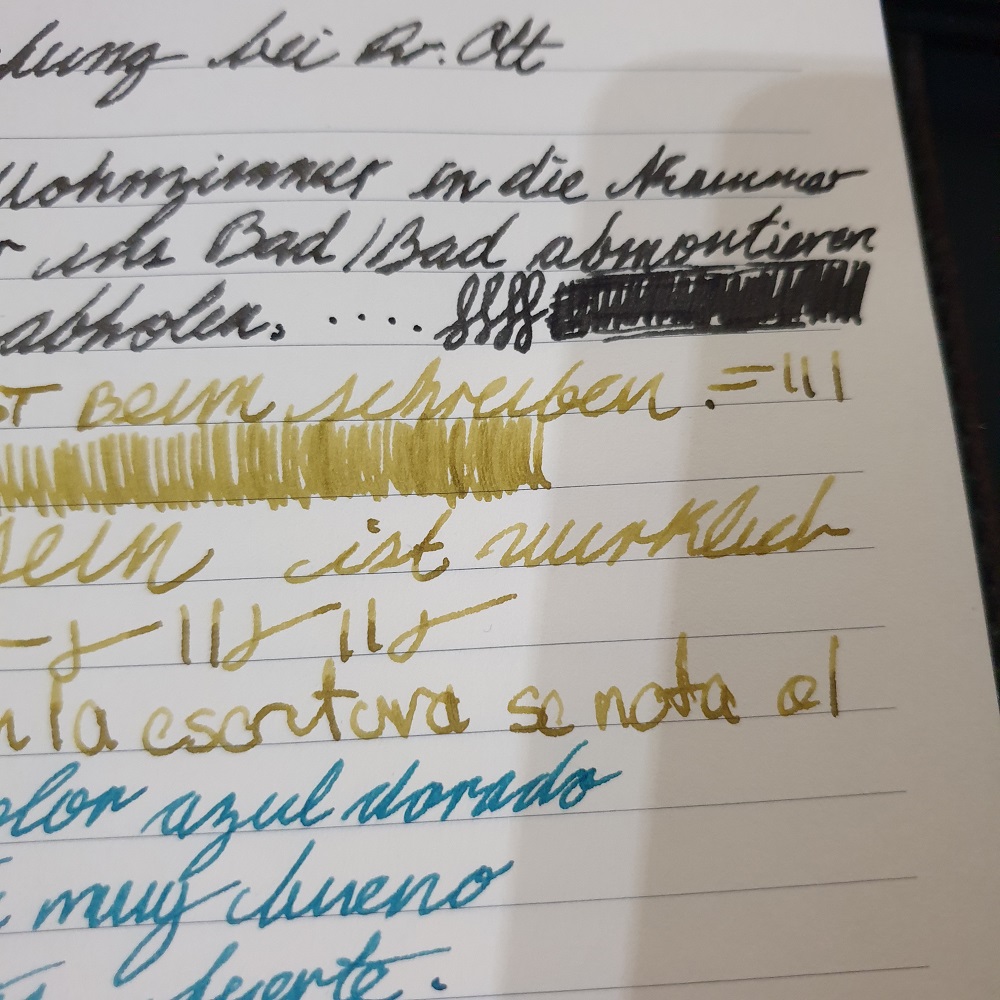 dung bei Dr. Ott
Wohnzimmer in die Kammer
ins Bad/Bad abmontieren
abholen. ....
st Beim schreiben. =|||
sein ist wirklich
n la escritura se nota el
olor azul dorado
muy bueno
fuerte.